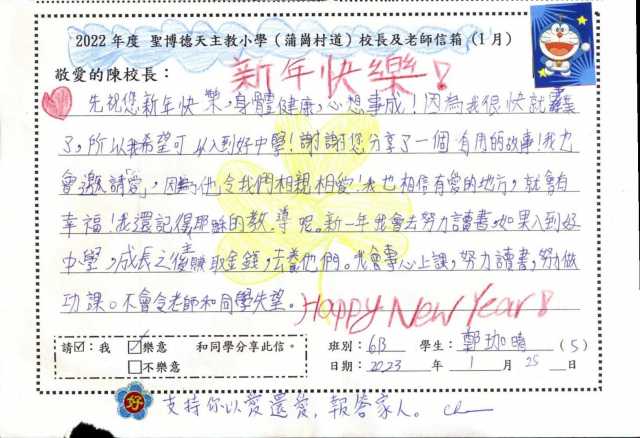 2022 年度 聖博德天主教小學（蒲崗村道）校長及老師信箱（1月）
敬愛的陳校長：
新年快樂！
先祝您新年快樂，身體健康，心想事成！因為我很快就畢業
了，所以我希望可以入到好中學！謝謝您分享了一個有用的故事！我也
會邀請「愛」，因為他令我們相親相愛！我也相信有愛的地方，就會有
幸福！我還記得耶穌的教導呢。新一年我會去努力讀書，如果入到好
中學，成長之後賺取金錢，去養他們。我會專心上課，努力讀書，努力做
功課。不會令老師和同學失望。
Happy New Year!
請☑：我 ☑樂意 和同學分享此信。
□不樂意
班別：6B 學生：鄭珈晴 (5)
日期：2023 年 1 月 25 日
好
支持你以愛還愛，報答家人。